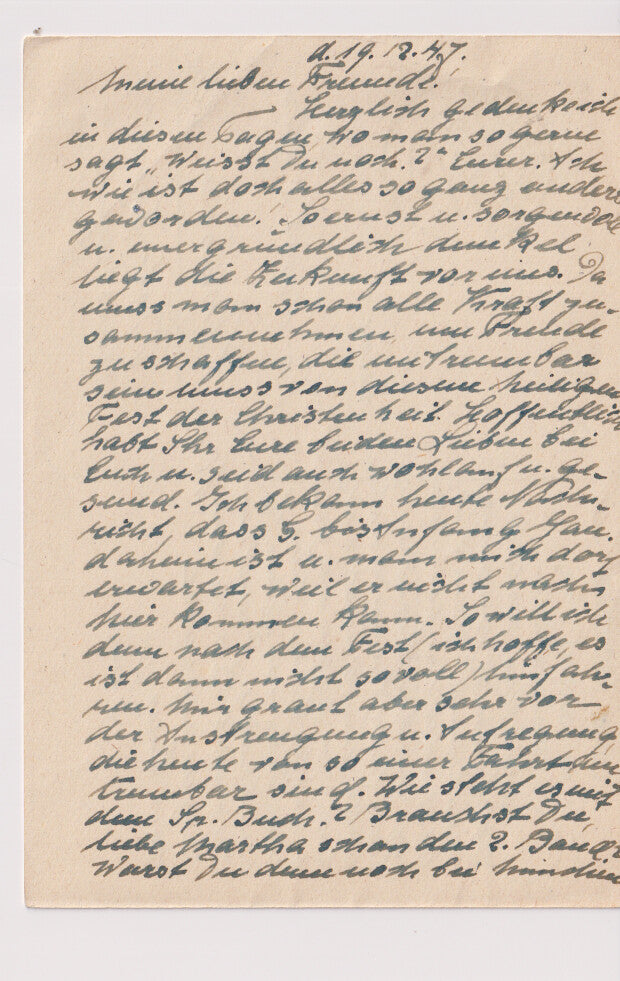 d. 19.12.47.
Meine lieben Freunde!
Herzlich gedenke ich
in diesen Tagen, wo man so gerne
sagt „Weisst Du noch.?" Eurer. Ach
wie ist doch alles so ganz anders
geworden! So ernst u. sorgenvoll
u. unergründlich dunkel
liegt die Zukunft vor uns. Da
muss man schon alle Kraft zu-
sammennehmen, um Freude
zu schaffen, die untrennbar
sein muss von diesem heiligen
Fest der Christenheit. Hoffentlich
habt Ihr Eure beiden Lieben bei
Euch u. seid auch wohlauf u. ge-
sund. Ich bekam heute Nach-
richt, dass G. bis Anfang Jan.
daheim ist u. man mich dort
erwartet, weil er nicht nach
hier kommen kann. So will ich
denn nach dem Fest (ich hoffe, es
ist dann nicht so voll) hinfah-
ren. Mir graut aber sehr vor
der Anstrengung u. Aufregung,
die heute von so einer Fahrt un
trennbar sind. Wie steht es mit
dem Sp. Buch.? Brauchst Du,
liebe Martha schon den 2. Band?
Warst Du denn noch bei